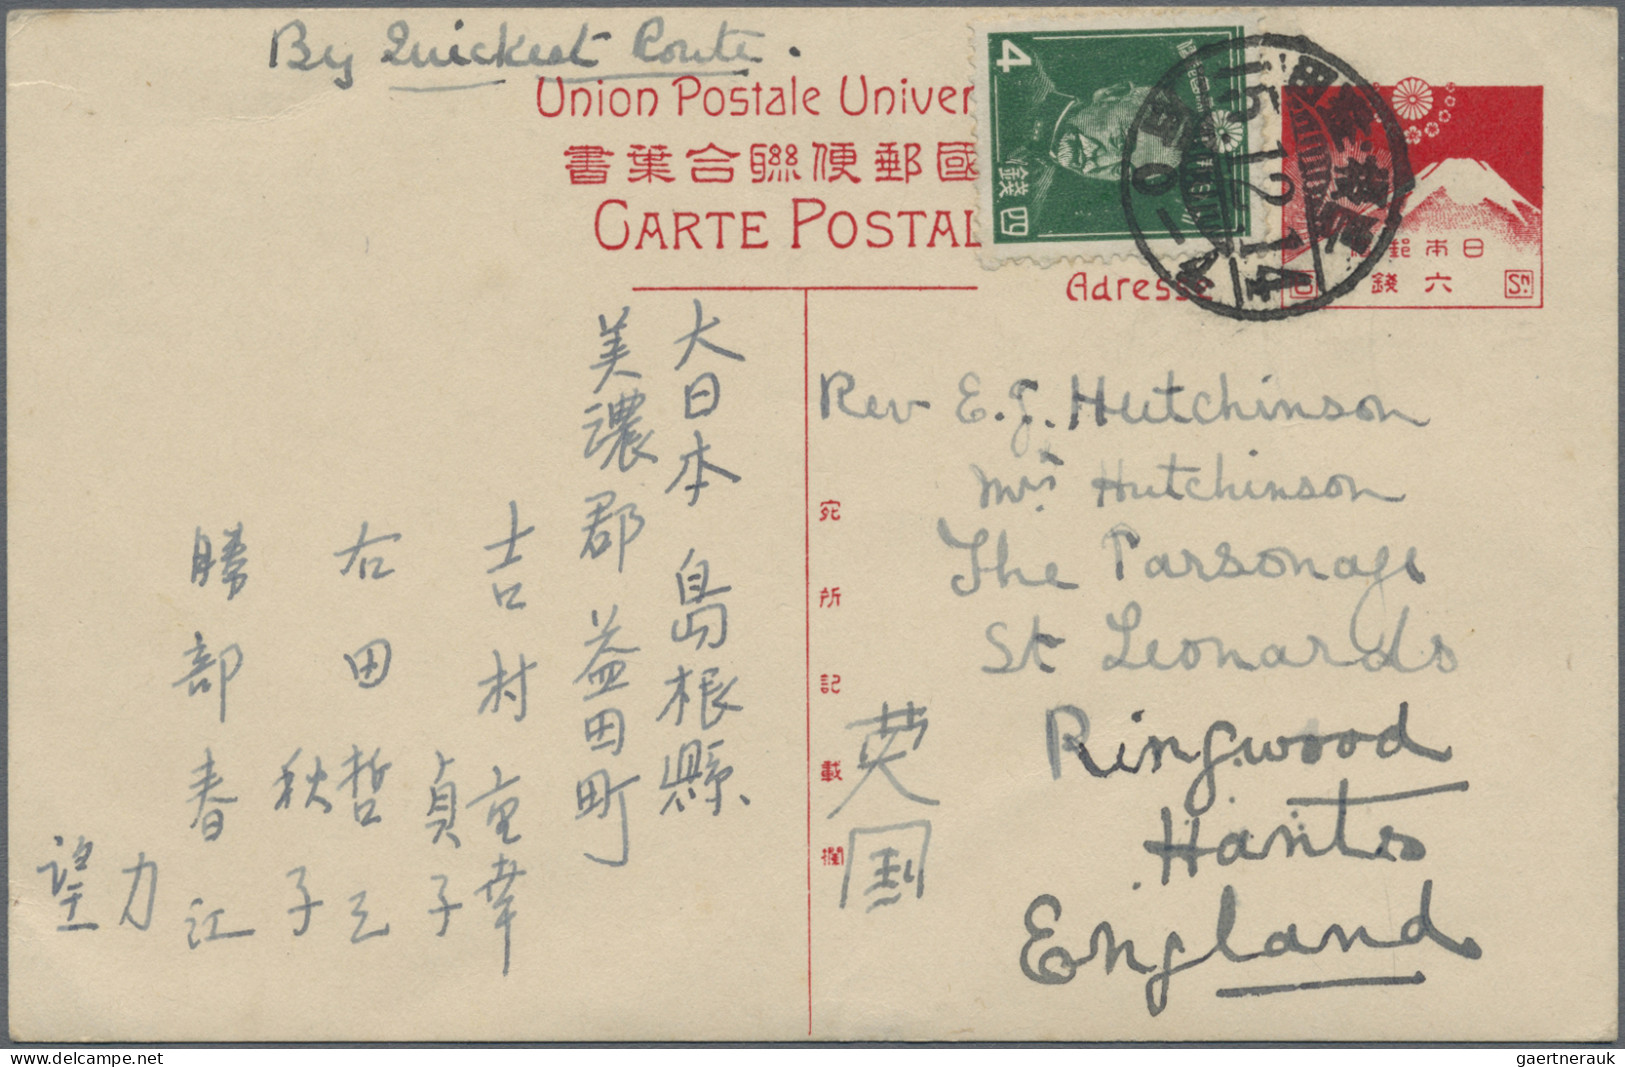 By Quickest Route.
Union Postale Univer
書葉合聯便郵國
CARTE POSTAL
Adresse
4
錢四
15.12.14
日本郵
錢六
Sn
Rev E.G. Hutchinson
Mrs Hutchinson
The Parsonage
St Leonards
Ringwood
Hants
England
英国
宛所記載欄
大日本 島根縣
美濃郡 益田町
吉村 重幸
貞子
右田哲三
秋子
勝部春江
力
望
delcampe.net
gaertnerauk